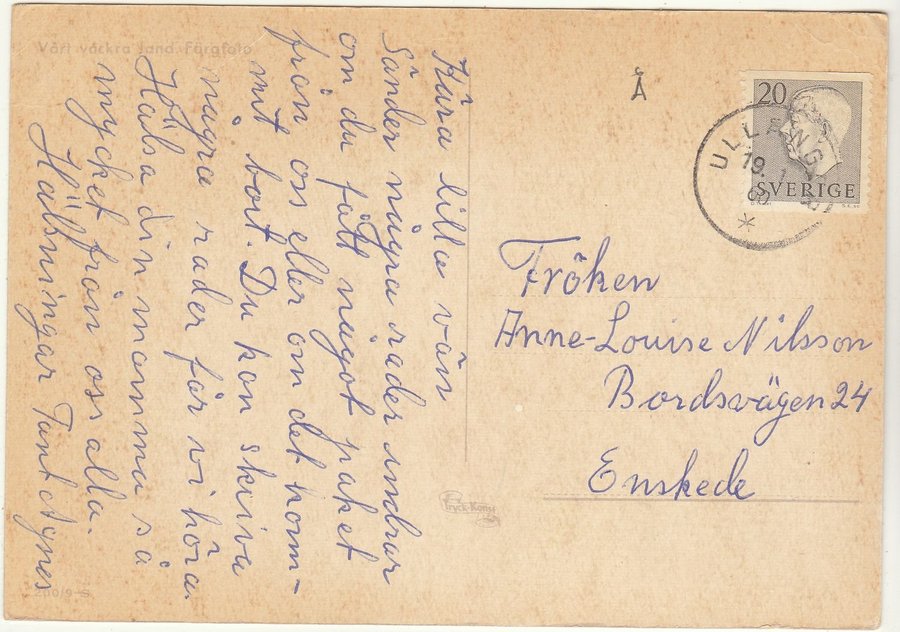 Vårt vackra land Färgfoto
Kära lilla vän
Sänder några rader undrar
om du fått något paket
från oss eller om det kom-
mit bort. Du kan skriva
några rader får vi höra.
Hälsa din mamma så
mycket från oss alla.
Hälsningar Tant Agnes
Å
20
SVERIGE
ULLÅNGER
19.
Fröken
Anne-Louise Nilsson
Bordsvägen 24
Enskede
Tryck-Konst